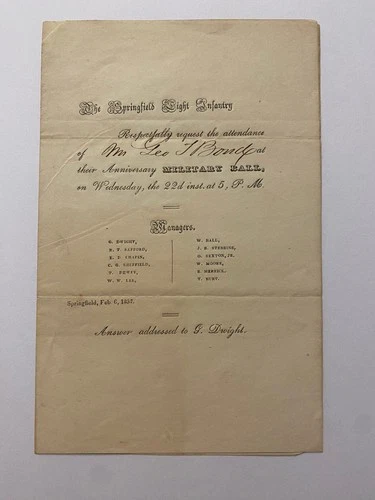 The Springfield Light Infantry
Respectfully request the attendance
of Mr Geo T Bond at
their Anniversary MILITARY BALL,
on Wednesday, the 22d inst. at 5, P. M.
Managers.
G. DWIGHT,
W. HALL,
J. E. STEBBINS,
E. D. CHAPIN,
G. SEXTON, JR.
W. MOORE,
W. W. LEE,
Springfield, Feb. 6, 1837.
Answer addressed to G. Dwight.